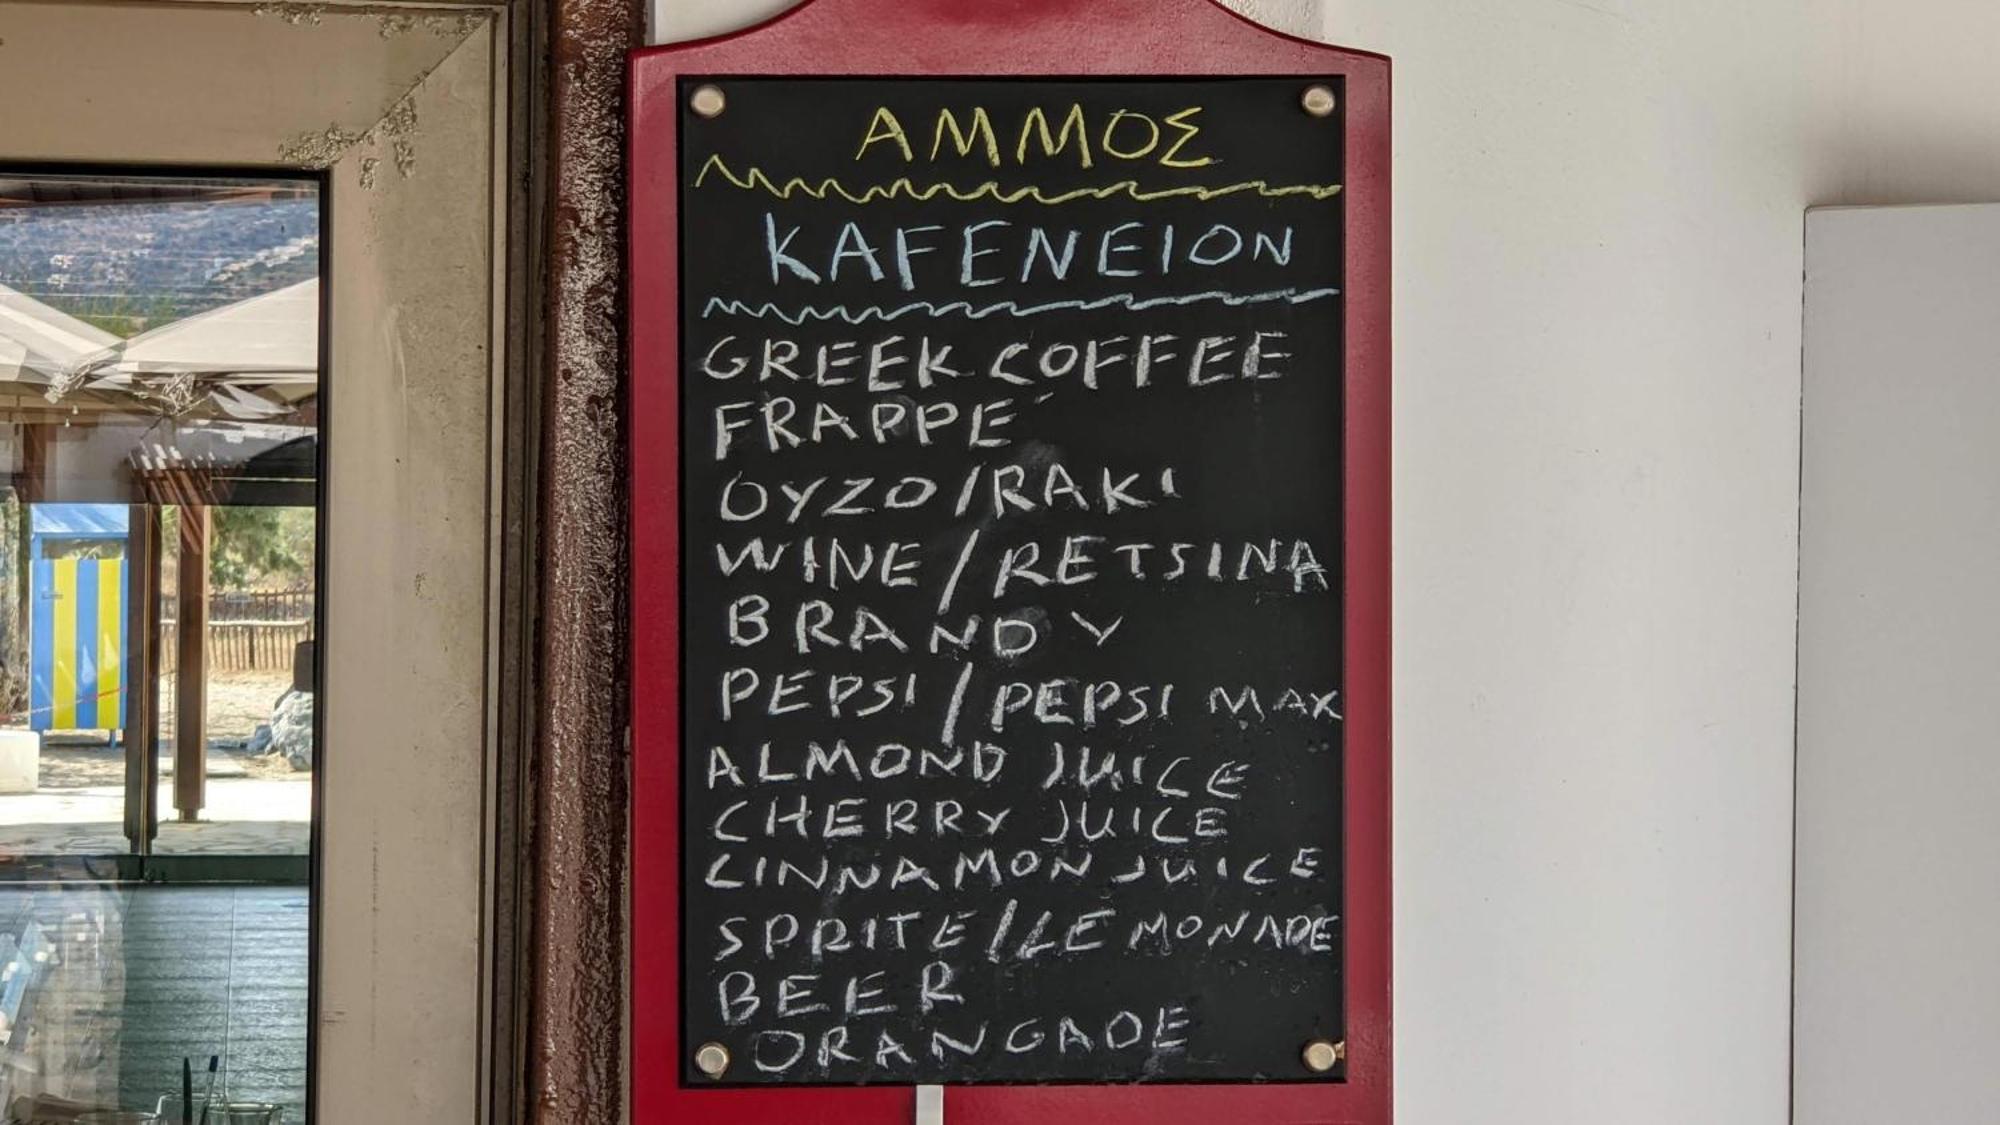 ΑΜΜΟΣ
KAFENEION
GREEK COFFEE
FRAPPE´
OYZO/RAKI
WINE/RETSINA
BRANDY
PEPSI/PEPSI MAX
ALMOND JUICE
CHERRY JUICE
CINNAMON JUICE
SPRITE/LEMONADE
BEER
ORANGADE